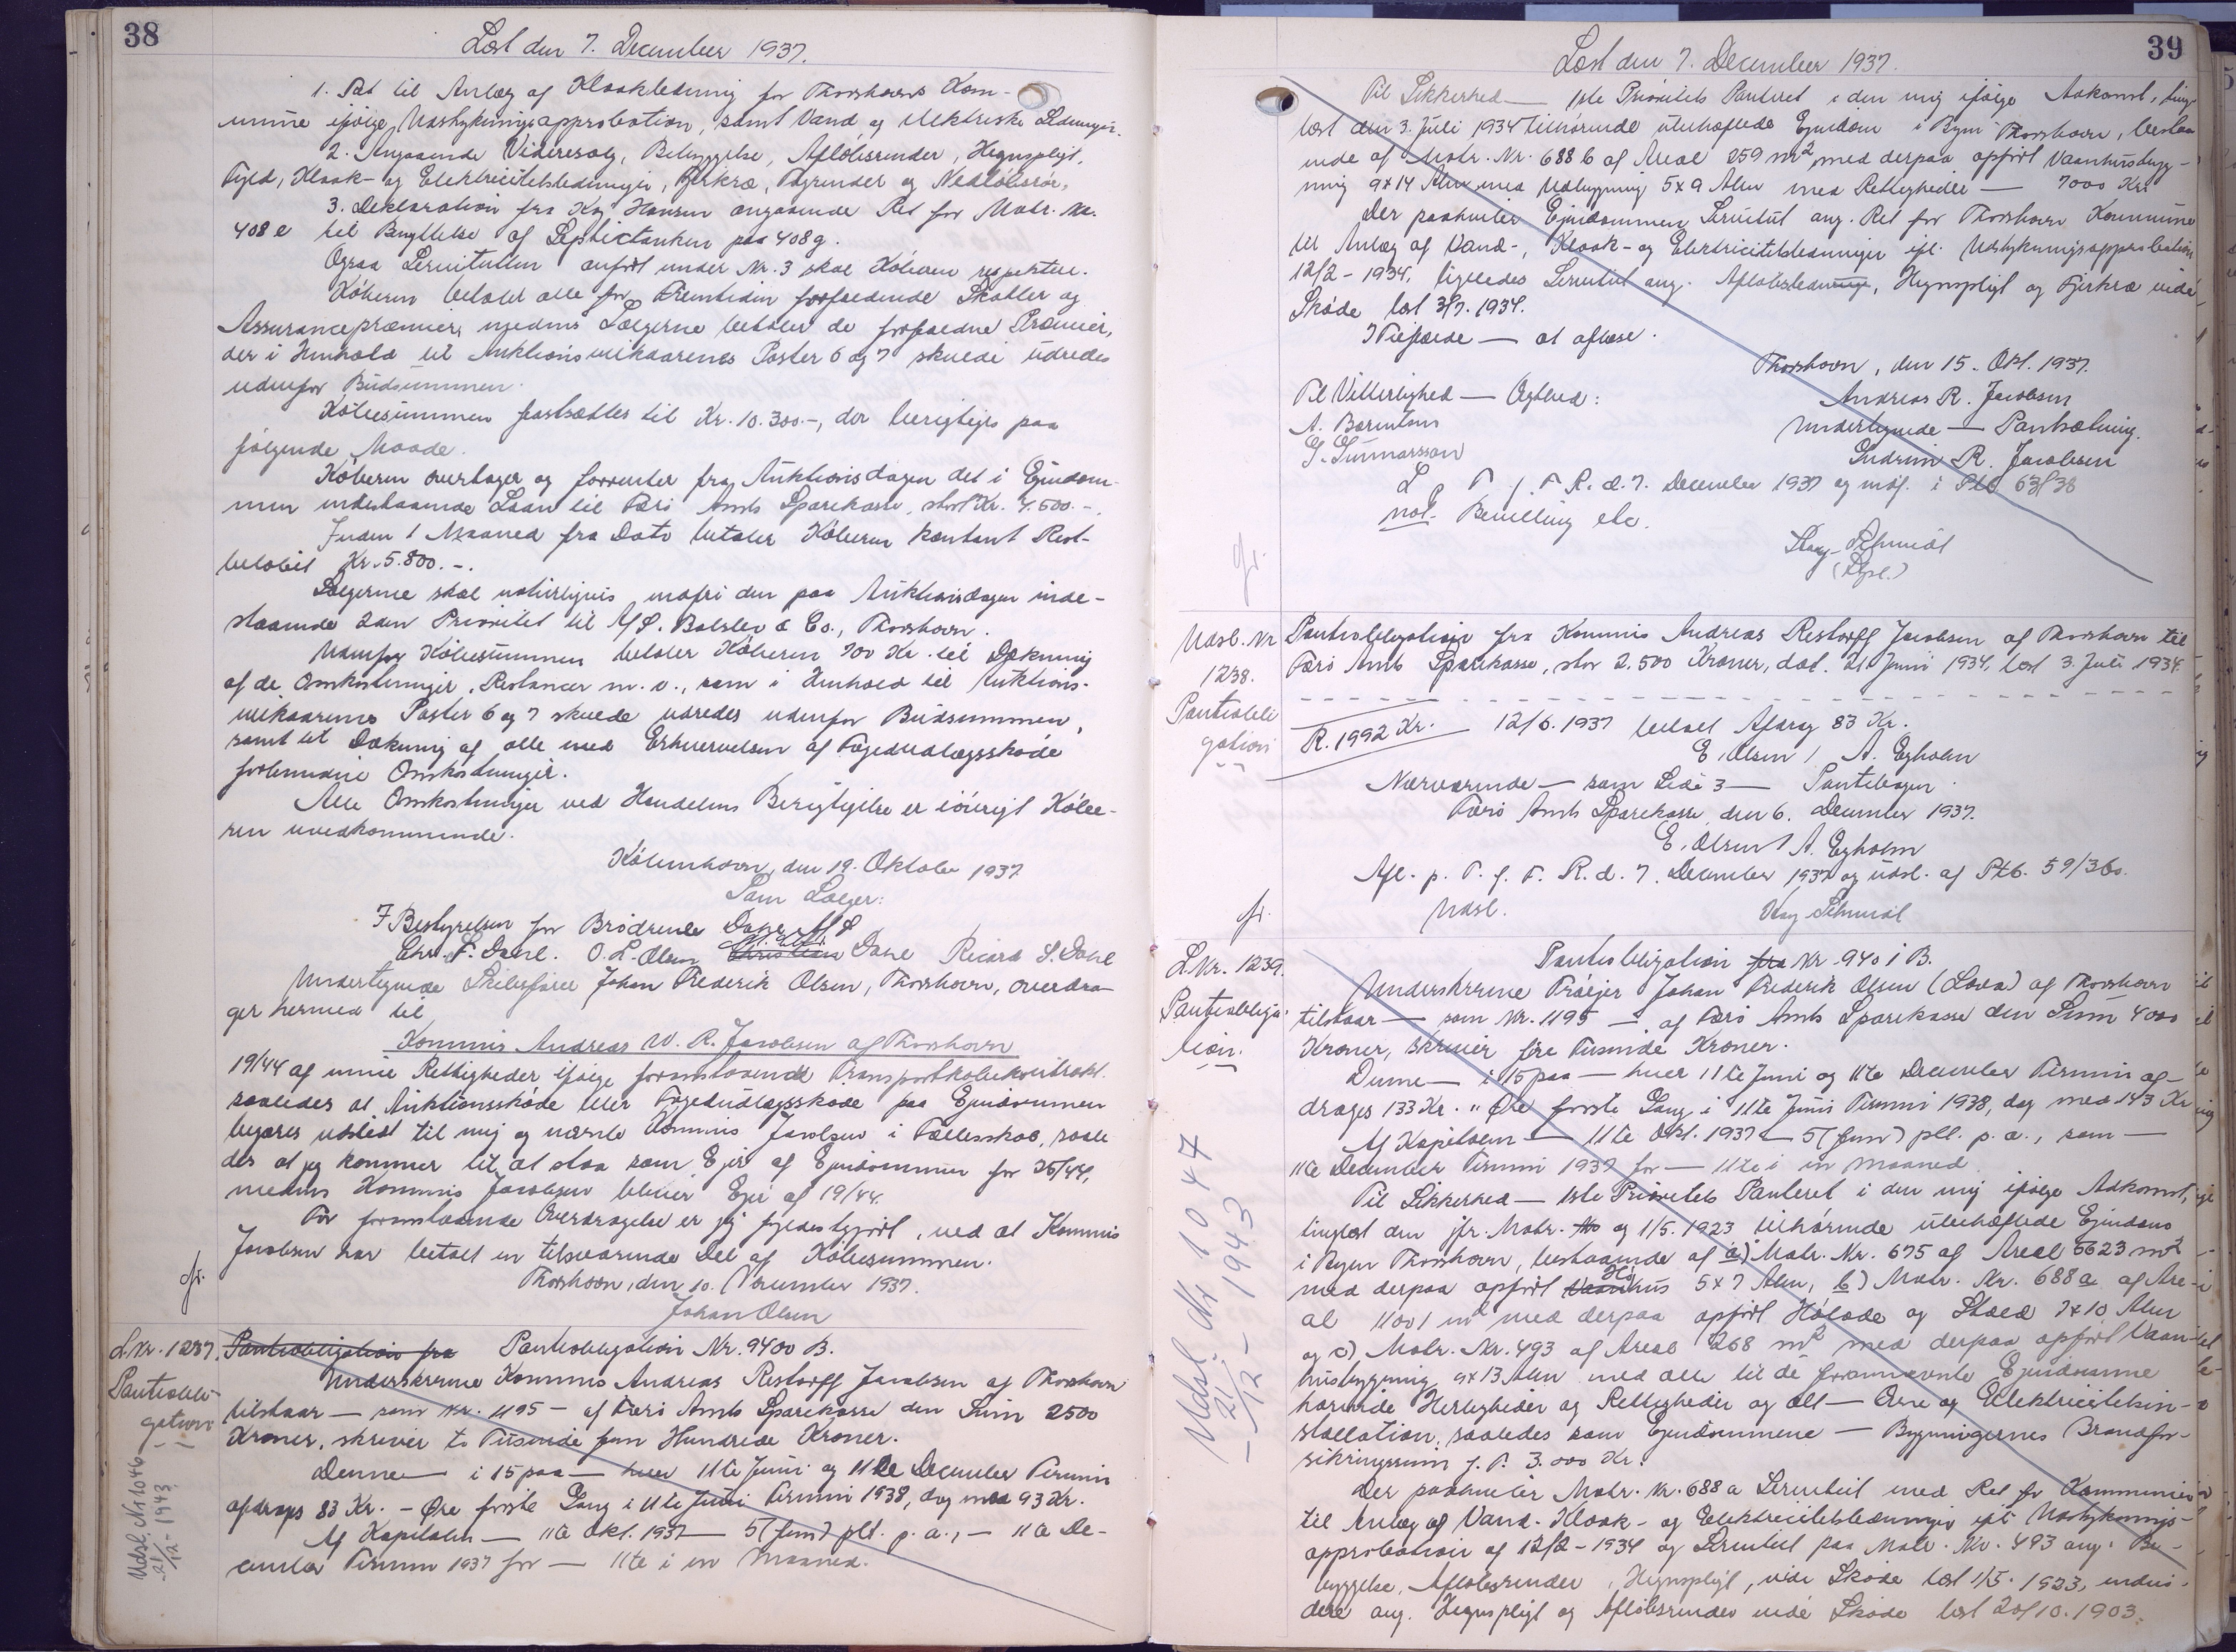 38
Læst den 7. December 1937.
1. Ret til Anlæg af Kloakledning for Thorshavns Kom-
mune ifølge Udstykningsapprobation, samt Vand og elektriske Ledninger.
2. Angaaende Videresalg, Bebyggelse, Afløbsrender, Hegnspligt,
Fyld, Kloak- og Elektricitetsledninger, Fjerkræ, Tagrender og Nedløbsrør,
3. Deklaration fra Kaj Hansen angaaende Ret for Matr. No.
408 e til Benyttelse af Septictanken paa 408g.
Ogsaa Servitutten anført under Nr. 3 skal Køberen respektere.
Køberen betaler alle for Fremtiden forfaldende Skatter og
Assurancepræmier, medens Sælgerne betaler de forfaldne Præmier,
der i Henhold til Auktionsvilkaarenes Poster 6 og 7 skulde udredes
udenfor Budsummen.
Købesummen fastsættes til Kr. 10.300.-, der berigtiges paa
følgende Maade.
Køberen overtager og forrenter fra Auktionsdagen det i Ejendom-
men indestaaende Laan til Færø Amts Sparekasse, stort Kr. 4.500.-.
Inden 1 Maaned fra Dato betaler Køberen kontant Rest-
beløbet Kr. 5.800.-.
Sælgerne skal naturligvis indfri den paa Auktionsdagen inde-
staaende 2den Prioritet til A/S. Balslev & Co., Thorshavn.
Udenfor Købesummen betaler Køberen 700 Kr. til Dækning
af de Omkostninger, Restancer m.v., som i Henhold til Auktions-
vilkaarenes Poster 6 og 7 skulde udredes udenfor Budsummen,
samt til Dækning af alle med Erhvervelsen af Fogedudlægsskøde
forbundne Omkostninger.
Alle Omkostninger ved Handelens Berigtigelse er iøvrigt Købe-
ren uvedkommende.
København, den 19. Oktober 1937
Som Sælger:
I Bestyrelsen for Brødrene Dahl A/S
Chr. F. Dahl. O. L. Olsen Christian Dahl Ricard S. Dahl
Undertegnede Skibsfører Johan Frederik Olsen, Thorshavn, overdra-
ger hermed til
Kommis Andreas W. R. Jacobsen af Thorshavn
19/44 af mine Rettigheder ifølge foranstaaende Transportkøbekontrakt.
saaledes at Auktionsskøde eller Fogedudlægsskøde paa Ejendommen
begæres udstedt til mig og nævnte Kommis Jacobsen i Fællesskab, saale
des at jeg kommer til at staa som Ejer af Ejendommen for 25/44,
medens Kommis Jacobsen bliver Ejer af 19/44.
For foranstaaende Overdragelse er jeg fyldestgjort, ved at Kommis
Jacobsen har betalt en tilsvarende Del af Købesummen.
Thorshavn, den 10. November 1937.
Johan Olsen
fr.
L.Nr. 1237. Pantobligation fra Pantobligation Nr. 9400 B.
Pantobli-
gation
Underskrevne Kommis Andreas Restorff Jacobsen af Thorshavn
tilstaar — som Nr. 1195 — af Færø Amts Sparekasse den Sum 2500
Kroner, skriver to Tusinde fem Hundrede Kroner.
Denne — i 15 paa — hver 11te Juni og 11te December Termin
afdrages 83 Kr. - Øre første Gang i 11te Juni Termin 1938, dog med 93 Kr.
Af Kapitalen — 11te Okt. 1937 — 5 (fem) pCt. p. a., — 11te De-
cember Termin 1937 for — 11te i en Maaned.
Udsl. Nr 1046
21/12-1943
39
Læst den 7. December 1937.
Til Sikkerhed — 1ste Prioritets Panteret i den mig ifølge Adkomst, ting-
læst den 3. Juli 1934 tilhørende ubehæftede Ejendom i Byen Thorshavn, bestaa
ende af Matr. Nr. 688 b af Areal 259 m2 med derpaa opført Vaanhusbyg-
ning 9x14 Alen med Udbygning 5x9 Alen med Rettigheder — 7000 Kr.
Der paahviler Ejendommen Servitut ang. Ret for Thorshavn Kommune
til Anlæg af Vand-, Kloak- og Elektricitetsledninger ifl. Udstykningsapprobation
12/2-1934, ligeledes Servitut ang. Afløbsledninge, Hegnspligt og Fjerkræ vide
Skøde læst 3/7. 1934.
I Tilfælde — at aflæse.
Thorshavn, den 15. Okt. 1937.
Til Vitterlighed — Ægthed: Andreas R. Jacobsen
A. Berntsen Undertegnede — Pantsætning.
G. Gunnarsson Gudrun R. Jacobsen
L. p. T. f. F. R. d. 7. December 1937 og indf. i Ptb 63/38
not. Bevilling etc.
Vaag-Schmidt
fr.
Udsl. Nr
1238.
Pantobli
gation
Pantobligation fra Kommis Andreas Restorff Jacobsen af Thorshavn til
Færø Amts Sparekasse, stor 2.500 Kroner, dat. 21 Juni 1934, læst 3. Juli 1934.
R. 1992 Kr. 12/6. 1937 betalt Afdrag 83 Kr.
E. Olsen / A. Egholm
Nærværende — som Side 3 — Pantebogen.
Færø Amts Sparekasse, den 6. December 1937.
E. Olsen / A. Egholm
Afl. p. T. f. F. R. d. 7. December 1937 og udsl. af Ptb. 59/360.
Udsl. Vaag-Schmidt
fr.
L.Nr. 1239.
Pantobliga-
tion.
Pantobligation fra Nr. 9401 B.
Underskrevne Prøjer Johan Frederik Olsen (Lava) af Thorshavn
tilstaar — som Nr. 1195 — af Færø Amts Sparekasse den Sum 4000
Kroner, skriver fire Tusinde Kroner.
Denne — i 15 paa — hver 11te Juni og 11te December Termin af-
drages 133 Kr. " Øre første Gang i 11te Juni Termin 1938, dog med 143 Kr
Af Kapitalen — 11te Okt. 1937 — 5 (fem) pCt. p. a., som —
11te December Termin 1937 for — 11te i en Maaned.
Til Sikkerhed — 1ste Prioritets Panteret i den mig ifølge Adkomst,
tinglæst den jfr. Matr. No og 1/5. 1923 tilhørende ubehæftede Ejendom
i Byen Thorshavn, bestaaende af a) Matr. Nr. 675 af Areal 5623 m2
med derpaa opført Vaanhus 5x7 Alen, b) Matr. Nr. 688 a af Are-
al 11001 m2 med derpaa opført Hølade og Stald 7x10 Alen
og c) Matr. Nr. 493 af Areal 268 m2 med derpaa opført Vaan-
husbygning 9x13 Alen med alle til de forannævnte Ejendomme
hørende Herligheder og Rettigheder og alt — Ovne og Elektricitetsin-
stallation, saaledes som Ejendommene — Bygningernes Brandfor-
sikringssum f. T. 3.000 Kr.
Der paahviler Matr. Nr. 688 a Servitut med Ret for Kommunen
til Anlæg af Vand- Kloak- og Elektricitetsledninger ifl. Udstyknings-
approbation af 12/2-1934 og Servitut paa Matr. Nr. 493 ang. Be-
byggelse, Afløbsrender, Hegnspligt, vide Skøde læst 1/5. 1923, endvi-
dere ang. Hegnspligt og Afløbsrender vide Skøde læst 20/10. 1903.
Udsl. Nr 1047
21/12-1943